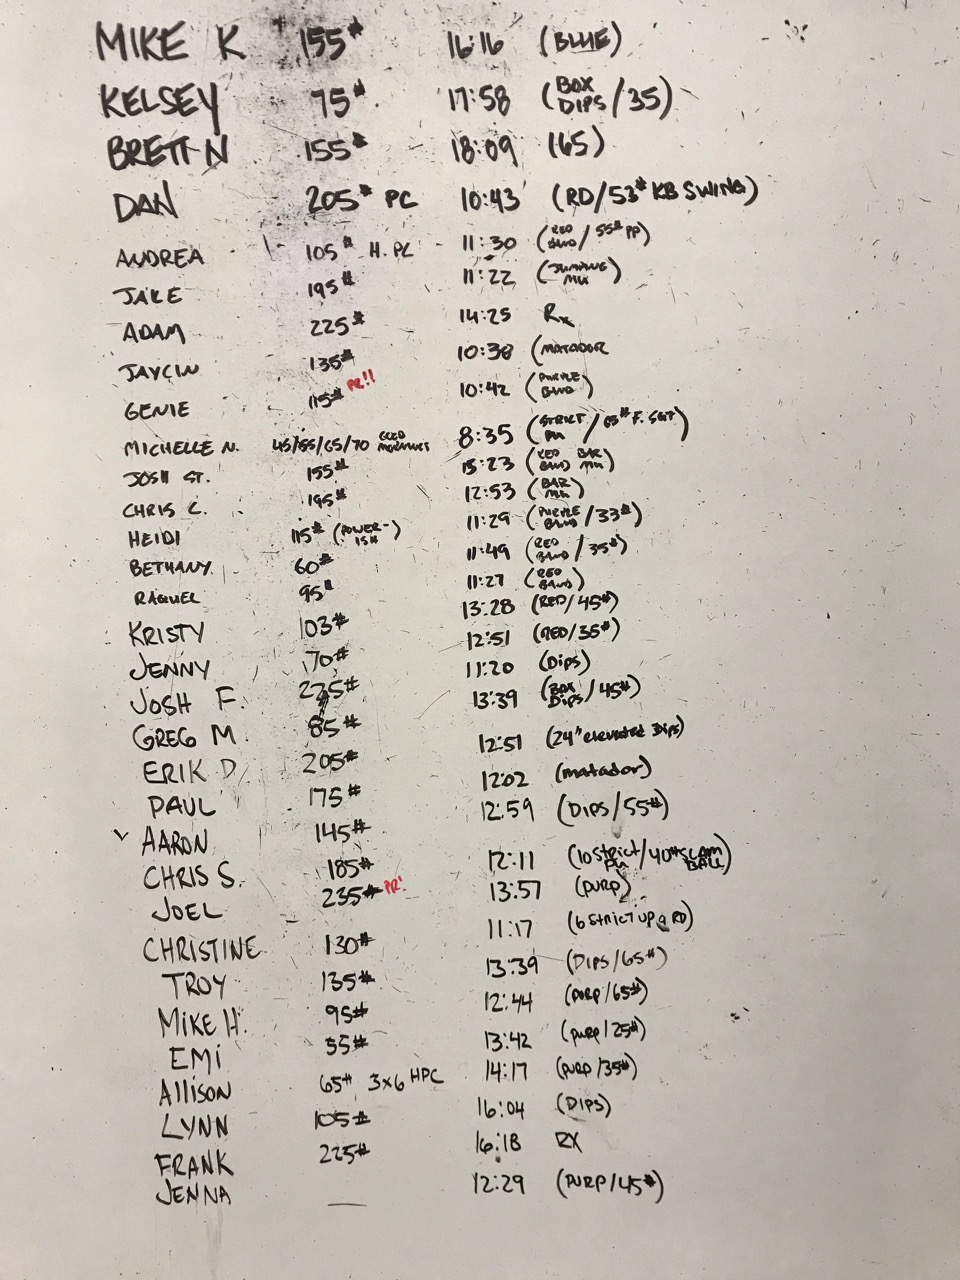 MIKE K 155# 16:16 (BLUE)
KELSEY 75# 17:58 (BOX DIPS/35)
BRETT N 155# 18:09 (65)
DAN 205# PC 10:43 (RD/53# KB SWING)
ANDREA 105# H. PC 11:30 (RED BAND/55# PP)
JAKE 195# 11:22 (JUMPING MU)
ADAM 225# 14:25 Rx
JAYCIN 135# 10:38 (MATADOR
GENIE 115# PR!! 10:42 (PURPLE BAND)
MICHELLE N. 45/55/65/70 GOOD MORNINGS 8:35 (STRICT PU/65# F. SQT)
JOSH ST. 155# 15:23 (RED BAND BAR MU)
CHRIS C. 195# 12:53 (BAR MU)
HEIDI 115# (POWER-ISH) 11:29 (PURPLE BAND/33#)
BETHANY. 60# 11:49 (RED BAND/35#)
RAQUEL 95# 11:27 (RED BAND)
KRISTY 103# 13:28 (RED/45#)
JENNY 70# 12:51 (RED/35#)
JOSH F. 225# 11:20 (DIPS)
GREG M. 85# 13:39 (BOX DIPS/45#)
ERIK D. 205# 12:51 (24" elevated Dips)
PAUL 175# 12:02 (matador)
AARON 145# 12:59 (DIPS/55#)
CHRIS S. 185# 12:11 (10 Strict PU/40# SLAM BALL)
JOEL 235# PR! 13:57 (PURP)
CHRISTINE 130# 11:17 (6 Strict up RD)
TROY 135# 13:39 (DIPS/65#)
MIKE H. 95# 12:44 (PURP/65#)
EMI 55# 13:42 (PURP/25#)
ALLISON 65# 3x6 HPC 14:17 (PURP/35#)
LYNN 105# 16:04 (DIPS)
FRANK 225# 16:18 RX
JENNA — 12:29 (PURP/45#)